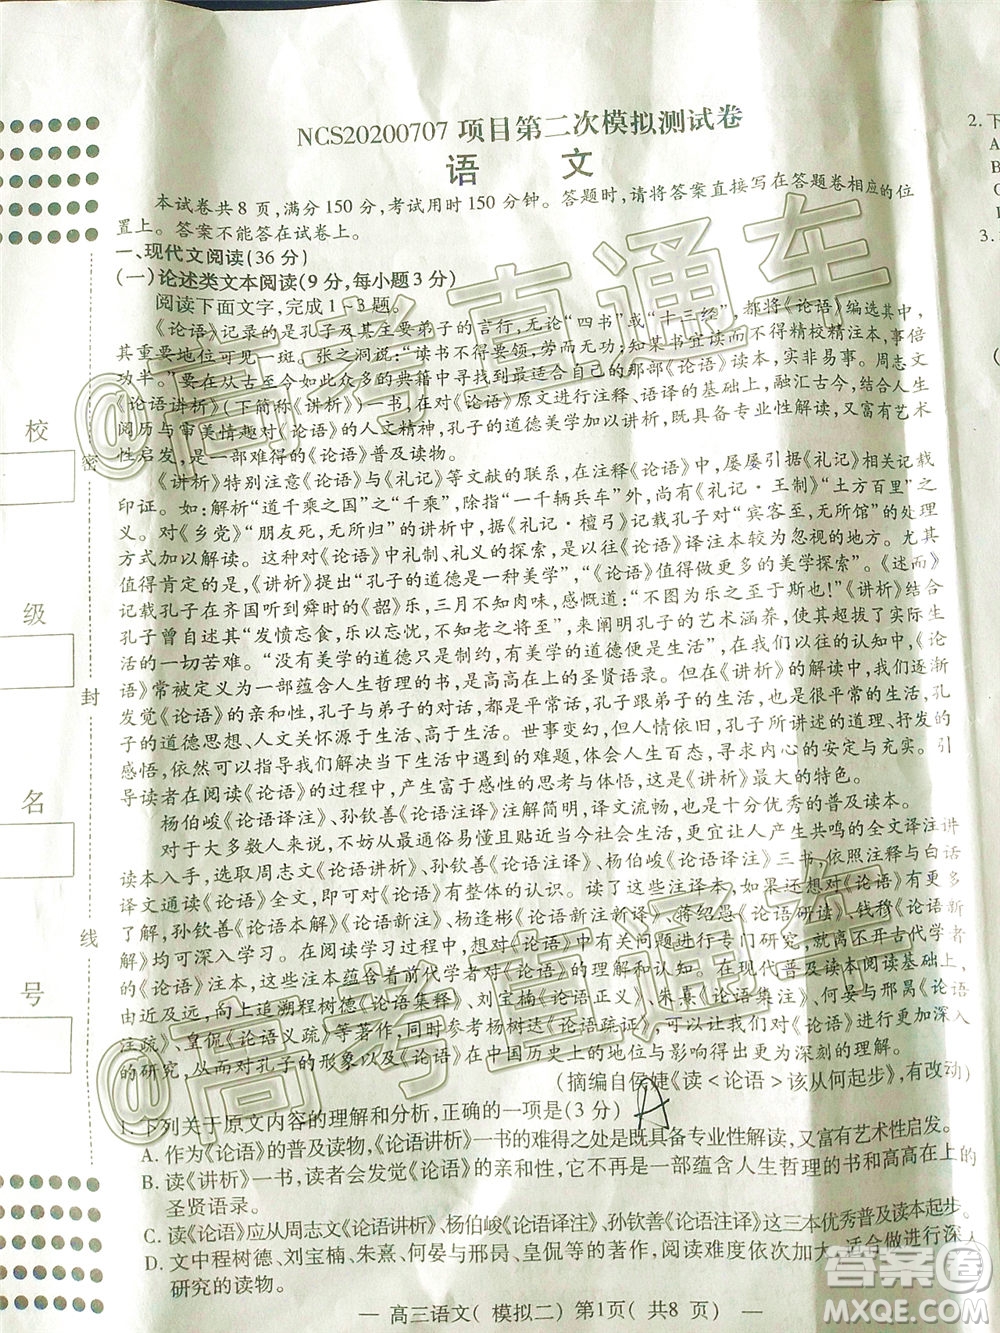 NCS20200707项目第二次模拟测试卷
语 文
本试卷共8页,满分150分,考试用时150分钟。答题时,请将答案直接写在答题卷相应的位
置上。答案不能答在试卷上。
一、现代文阅读(36分)
(一)论述类文本阅读(9分,每小题3分)
阅读下面文字,完成1~3题。
《论语》记录的是孔子及其主要弟子的言行,无论“四书”或“十三经”,都将《论语》编选其中,
其重要地位可见一斑。张之洞说:“读书不得要领,劳而无功;知某书宜读而得精校精注本,事倍
功半。”要在从古至今如此众多的典籍中寻找到最适合自己的那部《论语》读本,实非易事。周志文
《论语讲析》(下简称《讲析》)一书,在对《论语》原文进行注释、语译的基础上,融汇古今,结合人生
阅历与审美情趣对《论语》的人文精神,孔子的道德美学加以讲析,既具备专业性解读,又富有艺术
性启发,是一部难得的《论语》普及读物。
《讲析》特别注意《论语》与《礼记》等文献的联系,在注释、讲析《论语》中,屡屡引《礼记》
印证。如:解析“道千乘之国”之“千乘”,除指“一千辆兵车”外,尚有《礼记·王制》“土方百里”之
义。对《乡党》“朋友死,无所归”的讲析中,援引《礼记·檀弓》记载孔子对“宾客至,无所馆”的处理
方式加以解读。这种对《论语》中礼制、礼义的探究,是以往《论语》译注本较为忽视的地方。尤其
值得肯定的是,《讲析》指出“孔子的道德是一种美学”,“《论语》值得做更多的美学探索”。《述而》
记载孔子在齐国听到舜时的《韶》乐,三月不知肉味,感叹道:“不图为乐之至于斯也!”《讲析》结合
孔子曾自述其“发愤忘食,乐以忘忧,不知老之将至”,来阐明孔子的艺术涵养,使他超越了实际生
活的一切苦难。“没有美学的道德只是一种规训,无法感动人”。在我们以往的认知中,《论
语》常被定义为一部蕴含人生哲理的书,是高高在上的圣贤语录。但在《讲析》的解读中,我们逐渐
发觉《论语》的亲和性,孔子与弟子的对话,都是平常话,孔子跟弟子的生活,也是很平常的生活,孔
子的道德思想、人文关怀源于生活、高于生活。世事变幻,但人情依旧,孔子所讲述的道理、抒发的
情感,可以帮助我们解决当下生活中遇到的难题,体会人生百态,寻求内心的安定与充实。引
导读者在阅读《论语》的过程中,进行富于感性的思考与体悟,这是《讲析》最大的特色。
杨伯峻《论语译注》、孙钦善《论语注译》注解简明,译文流畅,也是十分优秀的普及读本。
对于大多数人来说,不妨从最通俗易懂且贴近当今社会生活,更宜让人产生共鸣的全文译注讲
读本入手,选取周志文《论语讲析》、孙钦善《论语注译》、杨伯峻《论语译注》三书,依照注释与白话
译文通读《论语》全文,即可对《论语》有整体的认识。读了这些注译本,如果还想对《论语》有更多
了解,孙钦善《论语本解》《论语新注》、杨逢彬《论语新注新译》、蒋绍愚《论语研读》、钱穆《论语新
解》均可深入学习。在阅读学习过程中,想对《论语》中有关问题进行专门研究,就离不开古代学者
《论语》的注本,这些注本蕴含着前代学者对《论语》的理解与阐释。在现代普及读本阅读基础上,
由近及远,向上追溯程树德《论语集释》、刘宝楠《论语正义》、朱熹《论语集注》、何晏与邢昺《论语
注疏》、皇侃《论语义疏》等著作,同时参考杨树达《论语疏证》,可以由浅入深地进行《论语》
的研究,从而对孔子的形象以及《论语》在中国历史上的地位与影响有更为深刻的理解。
(摘编自侯婕《读<论语>该从何起步》,有改动)
1.下列关于原文内容的理解和分析,正确的一项是(3分) A
A.作为《论语》的普及读物,《论语讲析》一书的难得之处是既具备专业性解读,又富有艺术性启发。
B.读《讲析》一书,读者会发觉《论语》的亲和性,它不再是一部蕴含人生哲理的书和高高在上的
圣贤语录。
C.读《论语》应从周志文《论语讲析》、杨伯峻《论语译注》、孙钦善《论语注译》这三本优秀普及读本起步。
D.文中程树德、刘宝楠、朱熹、何晏与邢昺、皇侃的著作,阅读难度依次加大,适合
研究的读物。
— 高三语文(模拟二)第1页(共8页) —
校
级
名
号
密
封
线
2.下
A
B
C
3.
@高考直通车
@高考直通车
答案圈
MXQE.COM